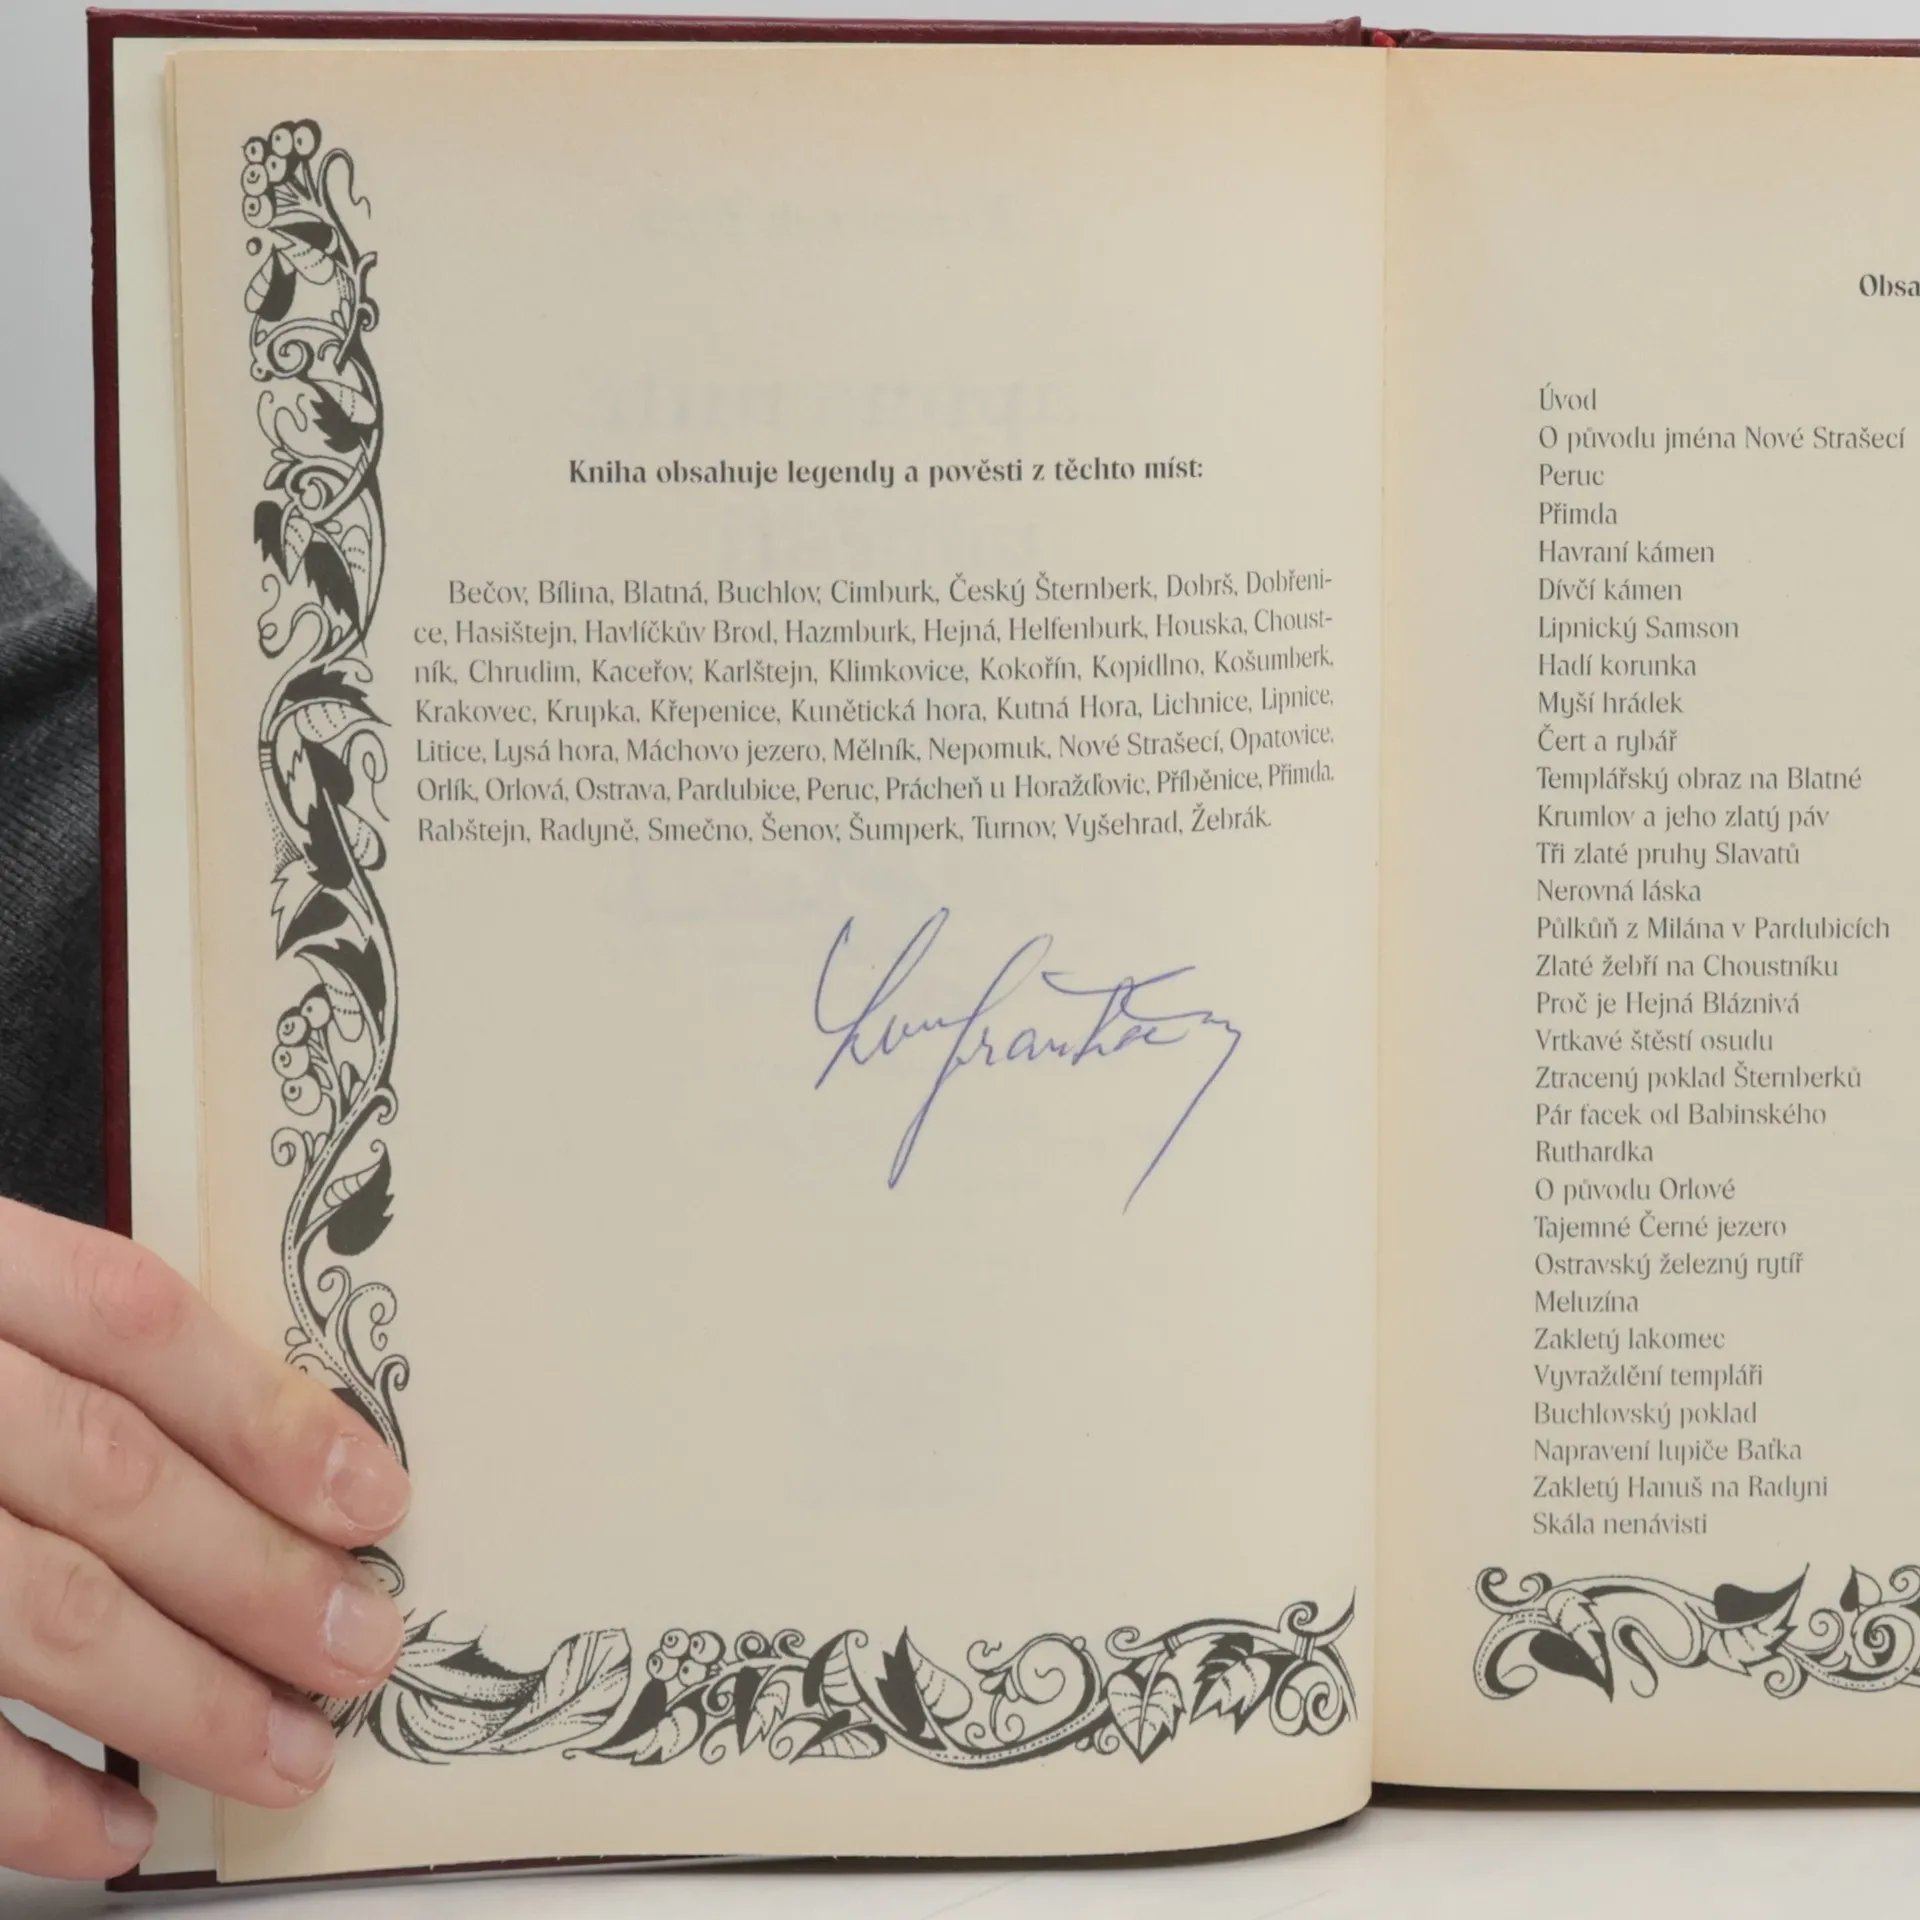 Kniha obsahuje legendy a pověsti z těchto míst:
Bečov, Bílina, Blatná, Buchlov, Cimburk, Český Šternberk, Dobrš, Dobřeni-
ce, Hasištejn, Havlíčkův Brod, Hazmburk, Hejná, Helfenburk, Houska, Choust-
ník, Chrudim, Kaceřov, Karlštejn, Klimkovice, Kokořín, Kopidlno, Košumberk,
Krakovec, Krupka, Křepenice, Kunětická hora, Kutná Hora, Lichnice, Lipnice,
Litice, Lysá hora, Máchovo jezero, Mělník, Nepomuk, Nové Strašecí, Opatovice,
Orlík, Orlová, Ostrava, Pardubice, Peruc, Prácheň u Horažďovic, Příběnice, Přimda,
Rabštejn, Radyně, Smečno, Šenov, Šumperk, Turnov, Vyšehrad, Žebrák.
Obsa
Úvod
O původu jména Nové Strašecí
Peruc
Přimda
Havraní kámen
Dívčí kámen
Lipnický Samson
Hadí korunka
Myší hrádek
Čert a rybář
Templářský obraz na Blatné
Krumlov a jeho zlatý páv
Tři zlaté pruhy Slavatů
Nerovná láska
Půlkůň z Milána v Pardubicích
Zlaté žebří na Choustníku
Proč je Hejná Bláznivá
Vrtkavé štěstí osudu
Ztracený poklad Šternberků
Pár facek od Babinského
Ruthardka
O původu Orlové
Tajemné Černé jezero
Ostravský železný rytíř
Meluzína
Zakletý lakomec
Vyvraždění templáři
Buchlovský poklad
Napravení lupiče Baťka
Zakletý Hanuš na Radyni
Skála nenávisti